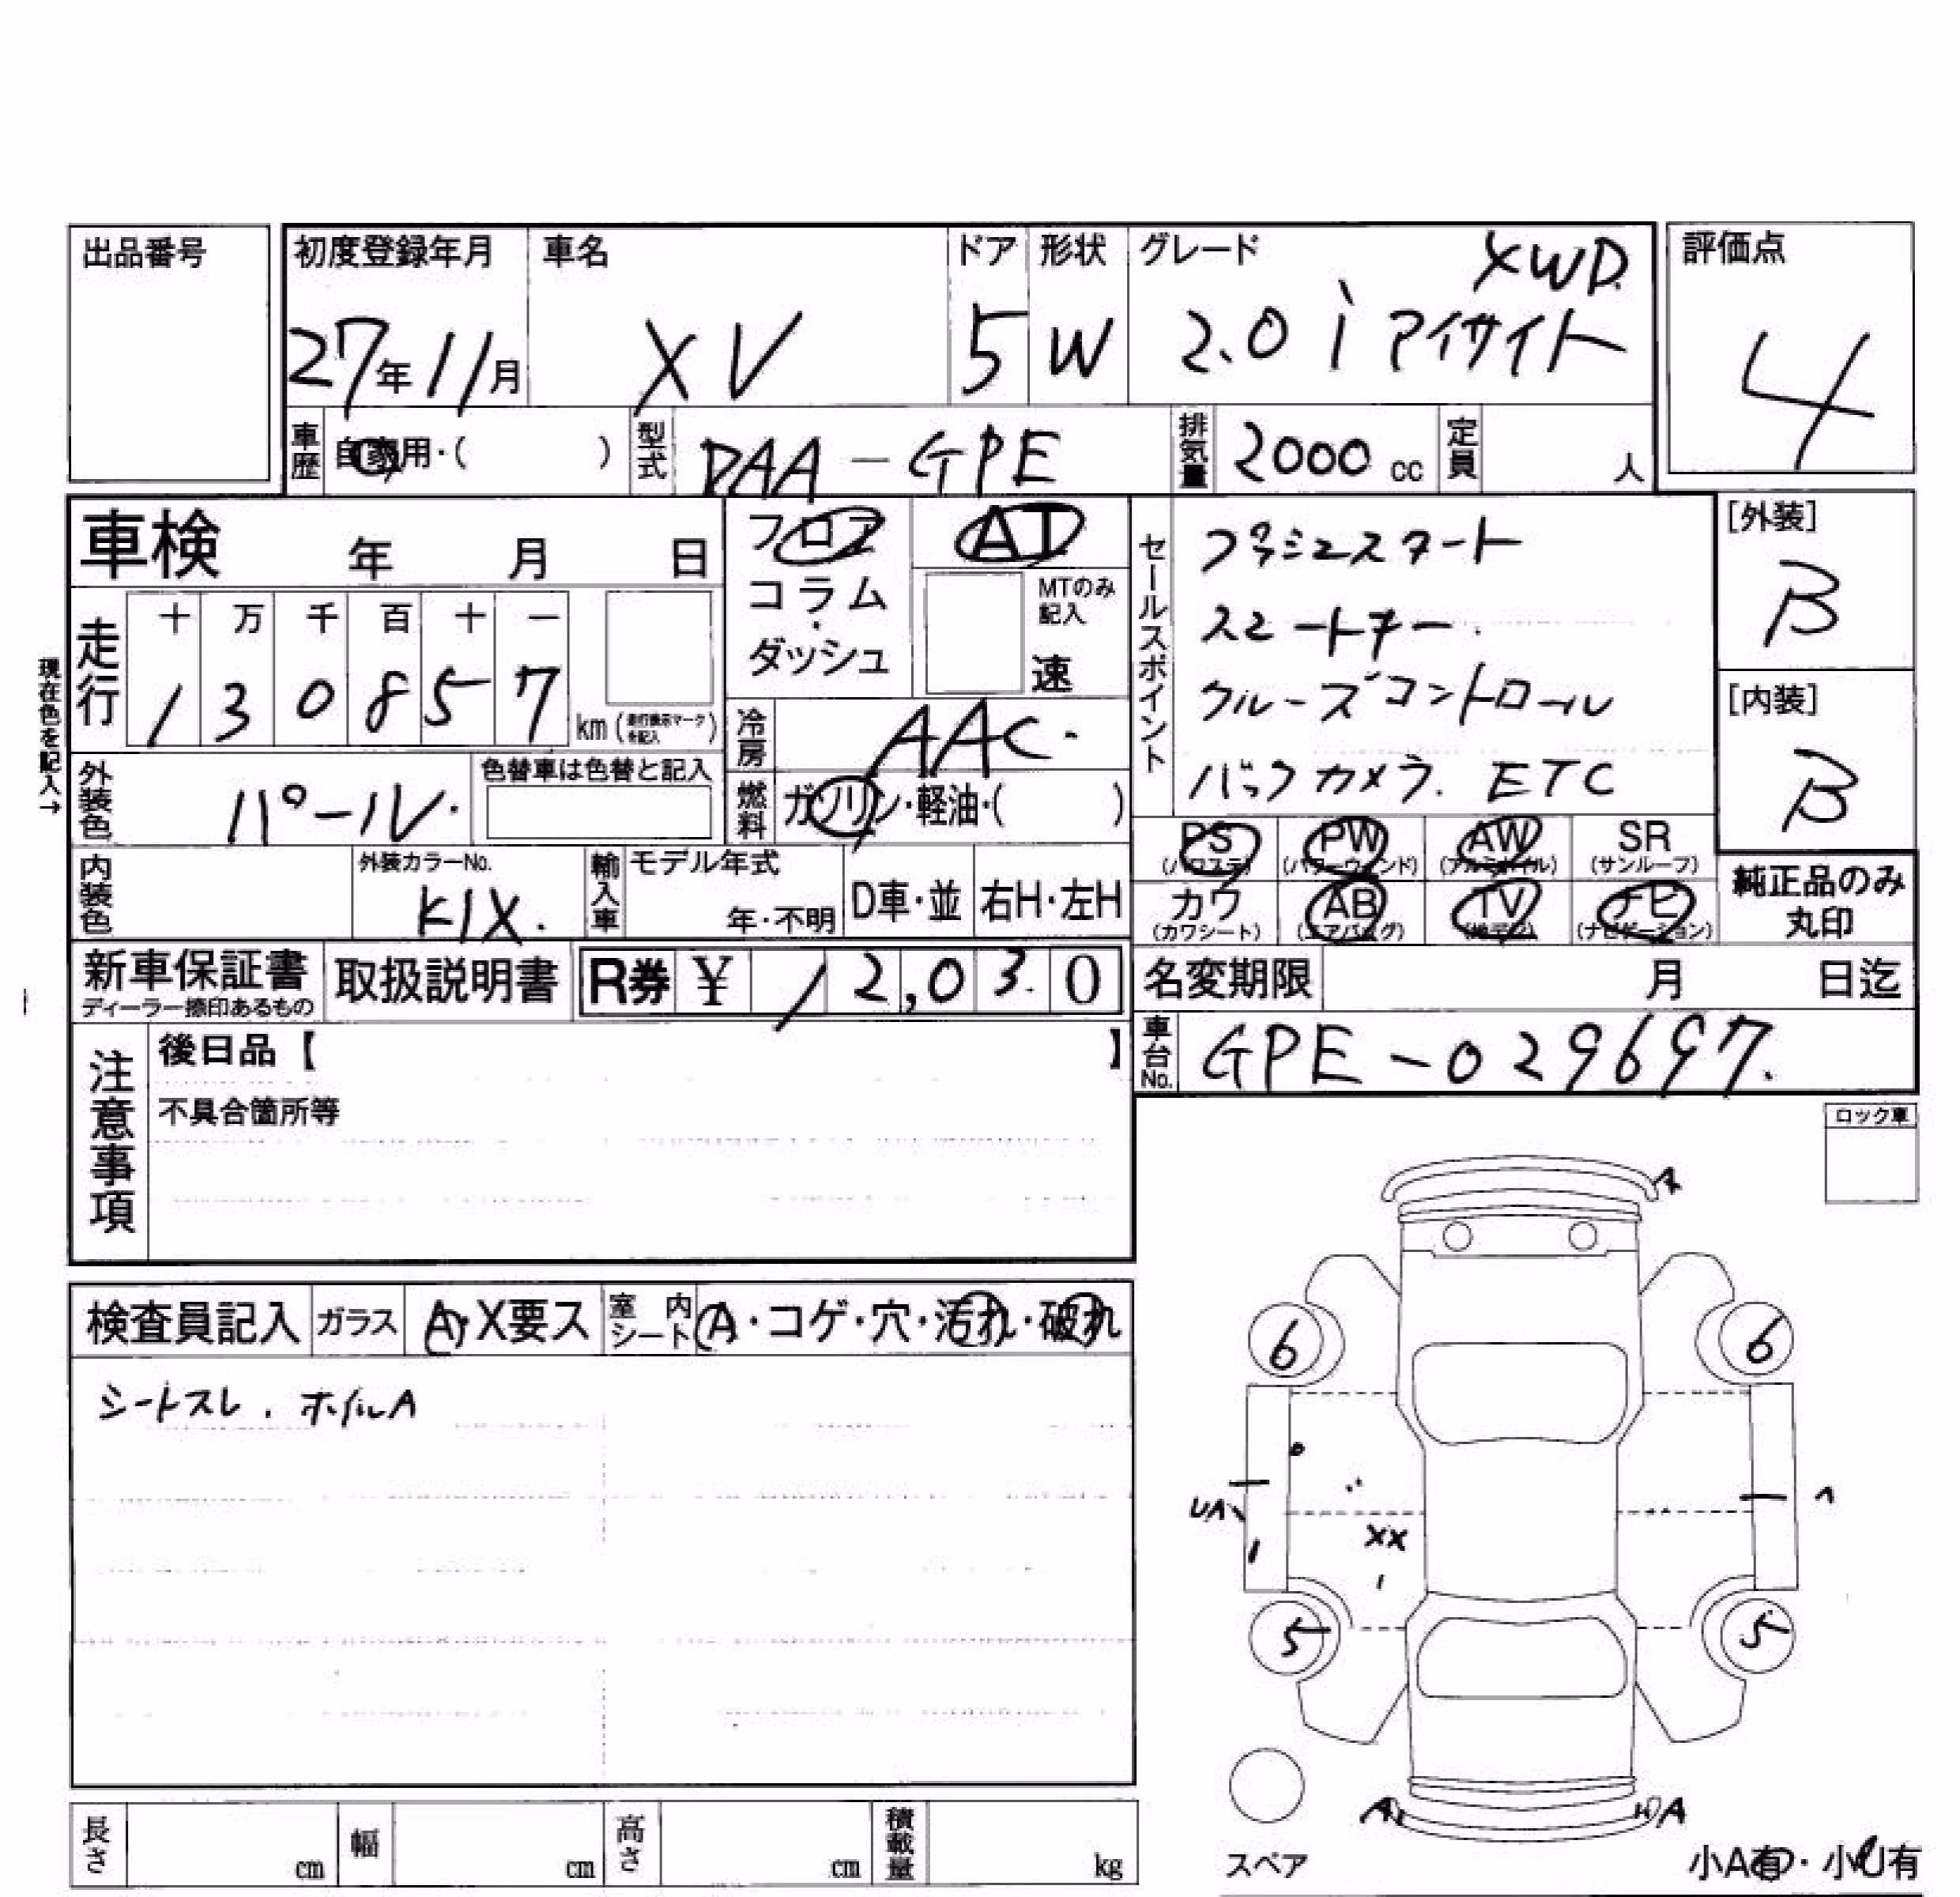 出品番号
初度登録年月 車名 ドア 形状 グレード 評価点
XWD
27年11月 XV 5 W 2.0i アイサイト 4
車歴 自家用・( ) 型式 DAA-GPE 排気量 2000 cc 定員 人
車検 年 月 日
フロア AT
コラム・
ダッシュ
MTのみ
記入
速
セールスポイント
プッシュスタート
スマートキー.
クルーズコントロール
バックカメラ. ETC
[外装]
B
[内装]
B
現在色を記入→
走行 十 万 千 百 十 一
1 3 0 8 5 7 km (走行表示マークを記入)
冷房 AAC.
燃料 ガソリン・軽油・( )
外装色 パール. 色替車は色替と記入
内装色 外装カラーNo. KIX. 輸入車 モデル年式
年・不明 D車・並 右H・左H
PS PW AW SR
(パワステ) (パワーウィンド) (アルミホイル) (サンルーフ)
カワ AB TV ナビ
(カワシート) (エアバッグ) (地デジ) (ナビゲーション)
純正品のみ
丸印
新車保証書 取扱説明書 R券 ¥ 12,030
ディーラー捺印あるもの
名変期限 月 日迄
車台No. GPE-029697.
注意事項
後日品【 】
不具合箇所等
ロック車
検査員記入 ガラス A・X要ス 室内シート A・コゲ・穴・汚れ・破れ
シートスレ. ホイルA
6 6
UA
XX
5 5
A A
スペア 小A有・小U有
長さ cm 幅 cm 高さ cm 積載量 kg